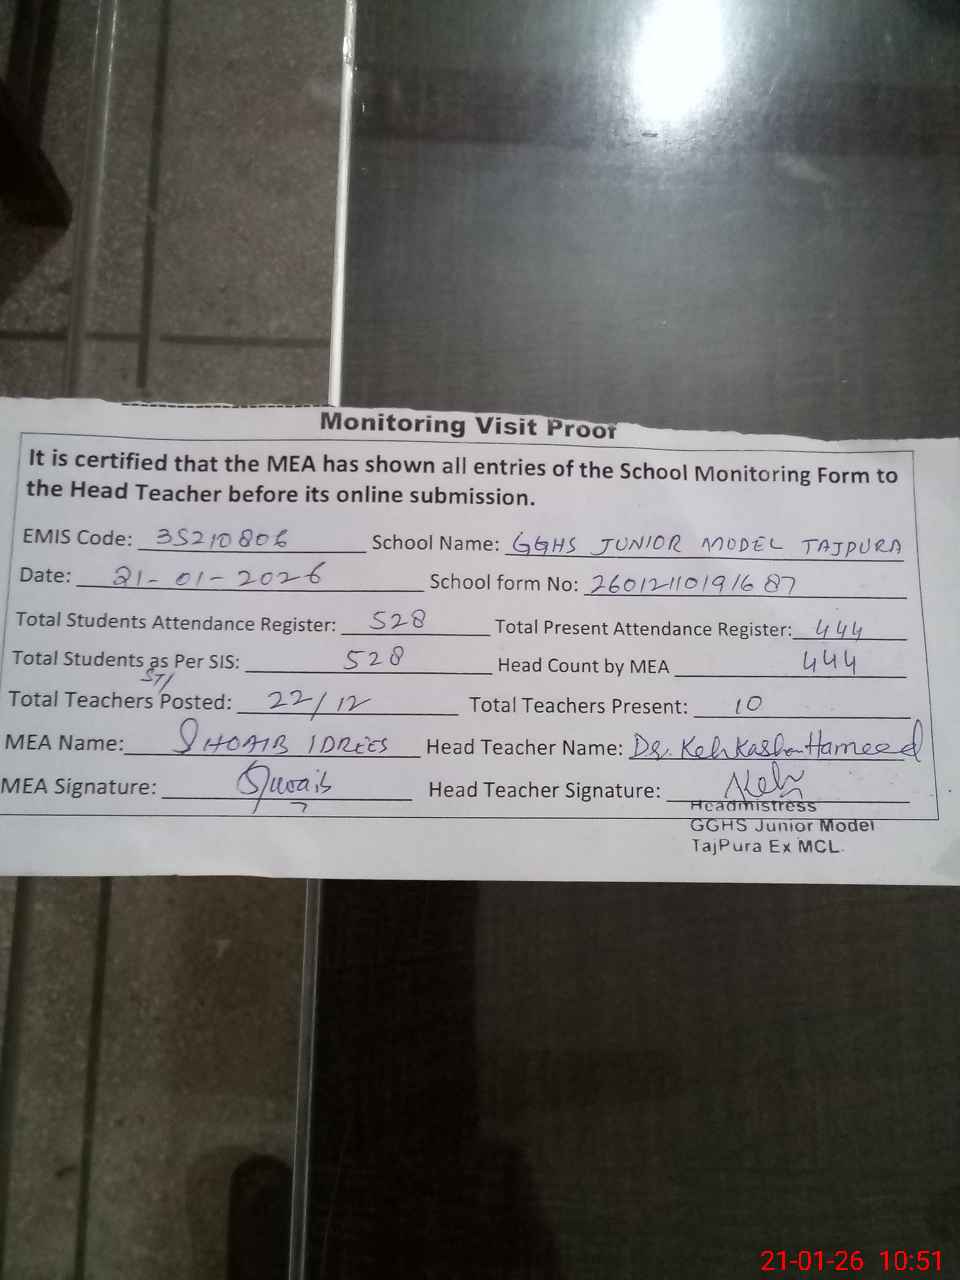 Monitoring Visit Proof
It is certified that the MEA has shown all entries of the School Monitoring Form to
the Head Teacher before its online submission.
EMIS Code: 35210806 School Name: GGHS JUNIOR MODEL TAJPURA
Date: 21-01-2026 School form No: 26012110191687
Total Students Attendance Register: 528 Total Present Attendance Register: 444
Total Students as Per SIS: 528 Head Count by MEA 444
ST/
Total Teachers Posted: 22/12 Total Teachers Present: 10
MEA Name: SHOAIB IDREES Head Teacher Name: Dr. Kehkashan Hameed
MEA Signature: Shoaib Head Teacher Signature: Keh
Headmistress
GGHS Junior Model
TajPura Ex MCL.
21-01-26 10:51